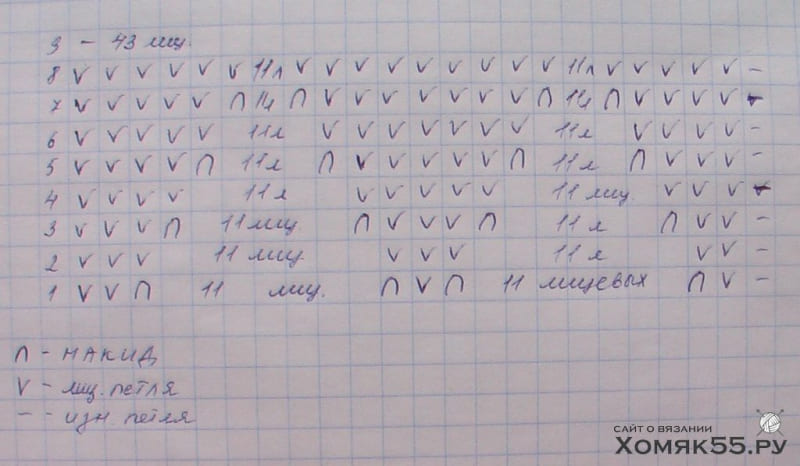 9 - 43 лиц.
8 V V V V V V 11л V V V V V V V V V 11л V V V V V -
7 V V V V V ∩ 11л ∩ V V V V V V V ∩ 11л ∩ V V V V -
6 V V V V V 11л V V V V V V V 11л V V V V -
5 V V V V ∩ 11л ∩ V V V V V ∩ 11л ∩ V V V -
4 V V V V 11л V V V V V 11 лиц. V V V -
3 V V V ∩ 11 лиц. ∩ V V V ∩ 11 л ∩ V V -
2 V V V 11 лиц. V V V 11 л V V -
1 V V ∩ 11 лиц. ∩ V ∩ 11 лицевых ∩ V -
∩ - НАКИД
V - лиц. петля
- - изн. петля
САЙТ О ВЯЗАНИИ
Хомяк55.ру